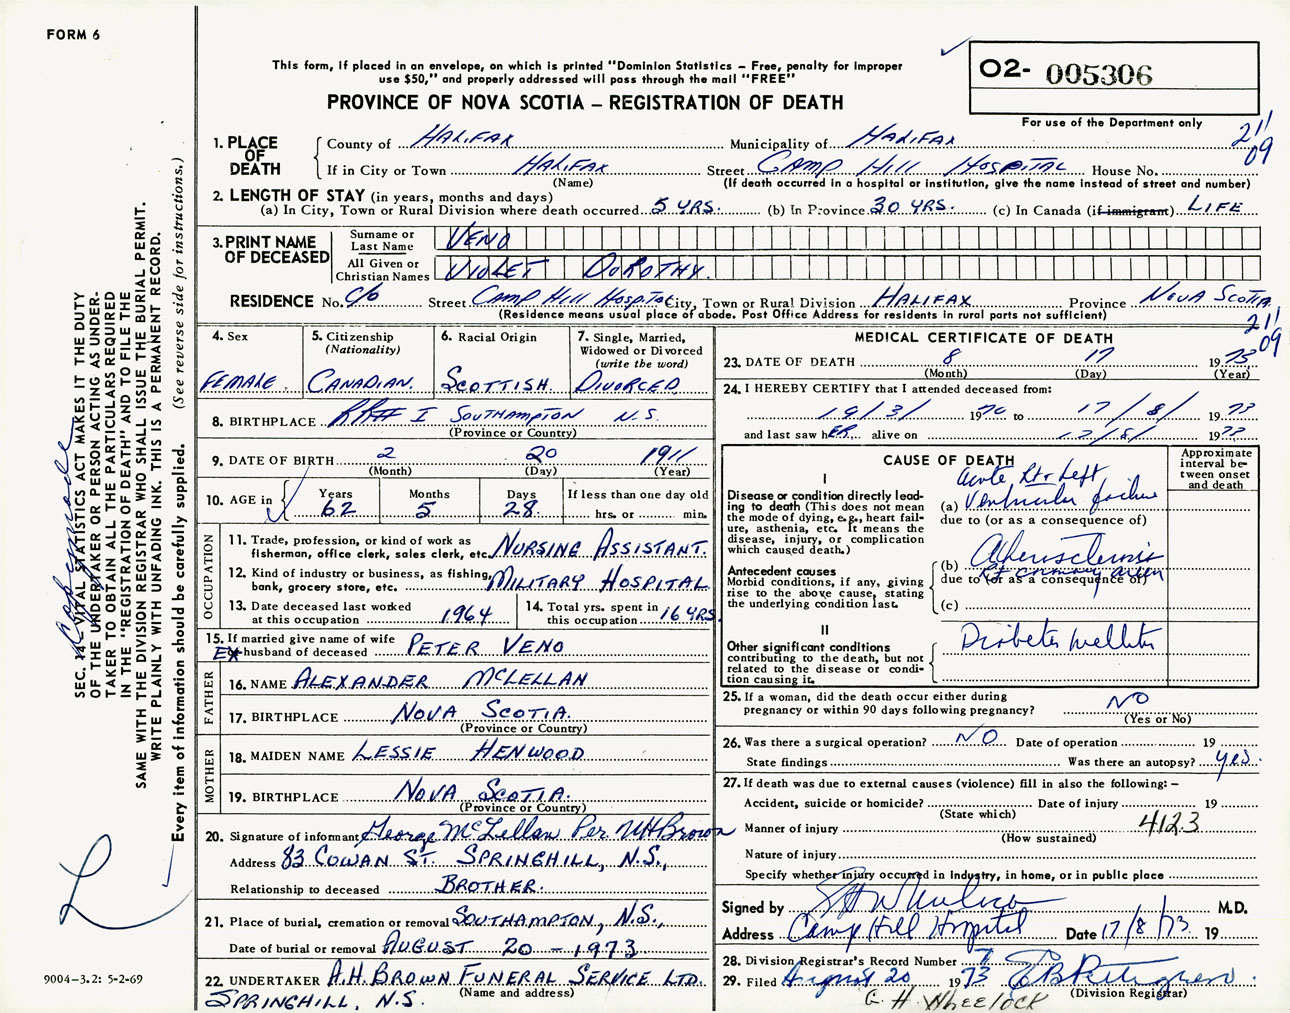 FORM 6
This form, if placed in an envelope, on which is printed "Dominion Statistics – Free, penalty for improper
use $50," and properly addressed will pass through the mail "FREE"
PROVINCE OF NOVA SCOTIA – REGISTRATION OF DEATH
O2- 005306
For use of the Department only
211
09
1. PLACE OF DEATH
County of HALIFAX Municipality of HALIFAX
If in City or Town HALIFAX Street CAMP HILL HOSPITAL House No.
(Name) (If death occurred in a hospital or institution, give the name instead of street and number)
2. LENGTH OF STAY (in years, months and days)
(a) In City, Town or Rural Division where death occurred 5 YRS. (b) In Province 30 YRS. (c) In Canada (if immigrant) LIFE
3. PRINT NAME OF DECEASED
Surname or Last Name VENO
All Given or Christian Names VIOLET DOROTHY
RESIDENCE No. C/O Street CAMP HILL HOSPITAL City, Town or Rural Division HALIFAX Province NOVA SCOTIA
(Residence means usual place of abode. Post Office Address for residents in rural parts not sufficient)
211
09
4. Sex FEMALE
5. Citizenship (Nationality) CANADIAN
6. Racial Origin SCOTTISH
7. Single, Married, Widowed or Divorced (write the word) DIVORCED
8. BIRTHPLACE RR# 1 SOUTHAMPTON N.S.
(Province or Country)
9. DATE OF BIRTH 2 20 1911
(Month) (Day) (Year)
10. AGE in Years 62 Months 5 Days 28 If less than one day old hrs. or min.
OCCUPATION
11. Trade, profession, or kind of work as fisherman, office clerk, sales clerk, etc. NURSING ASSISTANT.
12. Kind of industry or business, as fishing, bank, grocery store, etc. MILITARY HOSPITAL
13. Date deceased last worked at this occupation 1964
14. Total yrs. spent in this occupation 16 YRS.
15. If married give name of wife
EX husband of deceased PETER VENO
FATHER
16. NAME ALEXANDER McLELLAN
17. BIRTHPLACE NOVA SCOTIA.
(Province or Country)
MOTHER
18. MAIDEN NAME LESSIE HENWOOD
19. BIRTHPLACE NOVA SCOTIA.
(Province or Country)
20. Signature of informant George McLellan Per WH Brown
Address 83 COWAN ST. SPRINGHILL, N.S.,
Relationship to deceased BROTHER.
21. Place of burial, cremation or removal SOUTHAMPTON, N.S.,
Date of burial or removal AUGUST 20 – 1973
22. UNDERTAKER A.H. BROWN FUNERAL SERVICE LTD.
(Name and address)
SPRINGHILL, N.S.
MEDICAL CERTIFICATE OF DEATH
23. DATE OF DEATH 8 17 1973
(Month) (Day) (Year)
24. I HEREBY CERTIFY that I attended deceased from:
19/3/ 1970 to 17/8/ 1973
and last saw hER alive on 17/8/ 19
CAUSE OF DEATH
Approximate interval between onset and death
I
Disease or condition directly leading to death (This does not mean the mode of dying, e.g., heart failure, asthenia, etc. It means the disease, injury, or complication which caused death.)
Acute Left
(a) Ventricular failure
due to (or as a consequence of)
Antecedent causes
Morbid conditions, if any, giving rise to the above cause, stating the underlying condition last.
(b) Atherosclerosis
due to (or as a consequence of)
coronary artery
(c)
II
Other significant conditions contributing to the death, but not related to the disease or condition causing it.
Diabetes mellitus
25. If a woman, did the death occur either during pregnancy or within 90 days following pregnancy? NO
(Yes or No)
26. Was there a surgical operation? NO Date of operation 19
State findings Was there an autopsy? yes.
27. If death was due to external causes (violence) fill in also the following: –
Accident, suicide or homicide? Date of injury 19
(State which)
Manner of injury 4123
(How sustained)
Nature of injury
Specify whether injury occurred in industry, in home, or in public place
Signed by M.D.
Address Camp Hill Hospital Date 17/8/73 19
28. Division Registrar's Record Number
29. Filed August 20 1973
(Division Registrar)
G H Wheelock
SEC. 14. VITAL STATISTICS ACT MAKES IT THE DUTY
OF THE UNDERTAKER OR PERSON ACTING AS UNDER-
TAKER TO OBTAIN ALL THE PARTICULARS REQUIRED
IN THE "REGISTRATION OF DEATH" AND TO FILE THE
SAME WITH THE DIVISION REGISTRAR WHO SHALL ISSUE THE BURIAL PERMIT.
WRITE PLAINLY WITH UNFADING INK. THIS IS A PERMANENT RECORD.
Every item of information should be carefully supplied. (See reverse side for instructions.)
Copy made
9004–3.2: 5-2-69